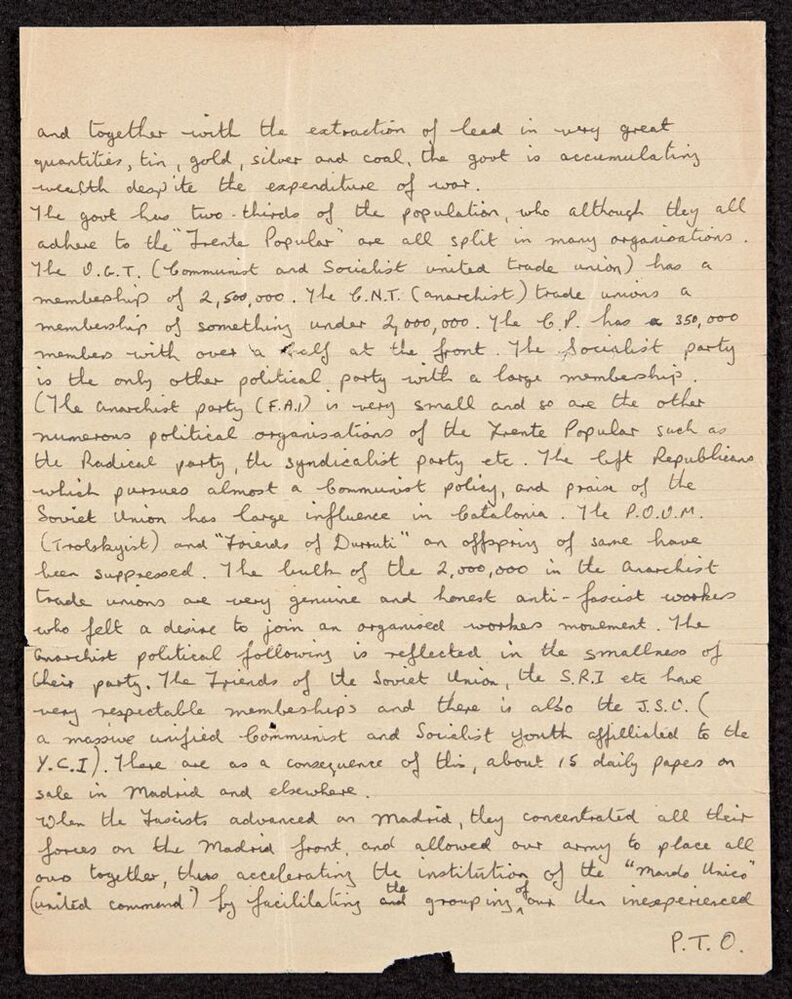 and together with the extraction of lead in very great
quantities, tin, gold, silver and coal, the govt is accumulating
wealth despite the expenditure of war.
The govt has two-thirds of the population, who although they all
adhere to the "Frente Popular" are all split in many organisations.
The U.G.T. (Communist and Socialist united trade union) has a
membership of 2,500,000. The C.N.T. (anarchist) trade unions a
membership of something under 2,000,000. The C.P. has a 350,000
members with over a half at the front. The Socialist party
is the only other political party with a large membership.
(The anarchist party (F.A.I) is very small and so are the other
numerous political organisations of the Frente Popular such as
the Radical party, the syndicalist party etc. The left Republicans
which pursues almost a Communist policy, and praise of the
Soviet Union has large influence in Catalonia. The P.O.U.M.
(Trotskyist) and "Friends of Durruti" an offspring of same have
been suppressed. The bulk of the 2,000,000 in the Anarchist
trade unions are very genuine and honest anti-fascist workers
who felt a desire to join an organised workers movement. The
Anarchist political following is reflected in the smallness of
their party. The Friends of the Soviet Union, the S.R.I etc have
very respectable memberships and there is also the J.S.U. (
a massive unified Communist and Socialist youth affilliated to the
Y.C.I). There are as a consequence of this, about 15 daily papers on
sale in Madrid and elsewhere.
When the Fascists advanced on Madrid, they concentrated all their
forces on the Madrid front, and allowed our army to place all
ours together, thus accelerating the institution of the "Mando Unico"
(united command) by facilitating the grouping of our then inexperienced
P.T.O.